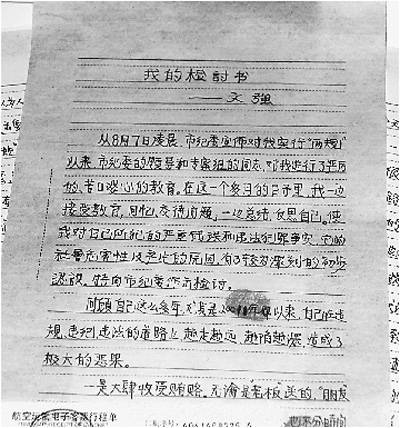 我的检讨书
——文强
从8月7日凌晨,市纪委宣布对我实行"两规"
以来,市纪委的领导和专案组的同志,对我进行了严厉
的、苦口婆心的教育,在这一个多月的日子里,我一边
接受教育,回忆交待问题,一边总结、反思自己。使
我对自己所犯的严重错误和违法犯罪事实,
严重危害性以及走的原因,有了较为深刻的初步
认识,特向市纪委作出检讨。
回顾自己这么多年,尤其是年以来,自己在违
规、违纪、违法的道路上,越走越远,越陷越深,造成了
极大的恶果。
一是大肆收受贿赂。无论是老板送的,"朋友
航空运输电子客票行程单